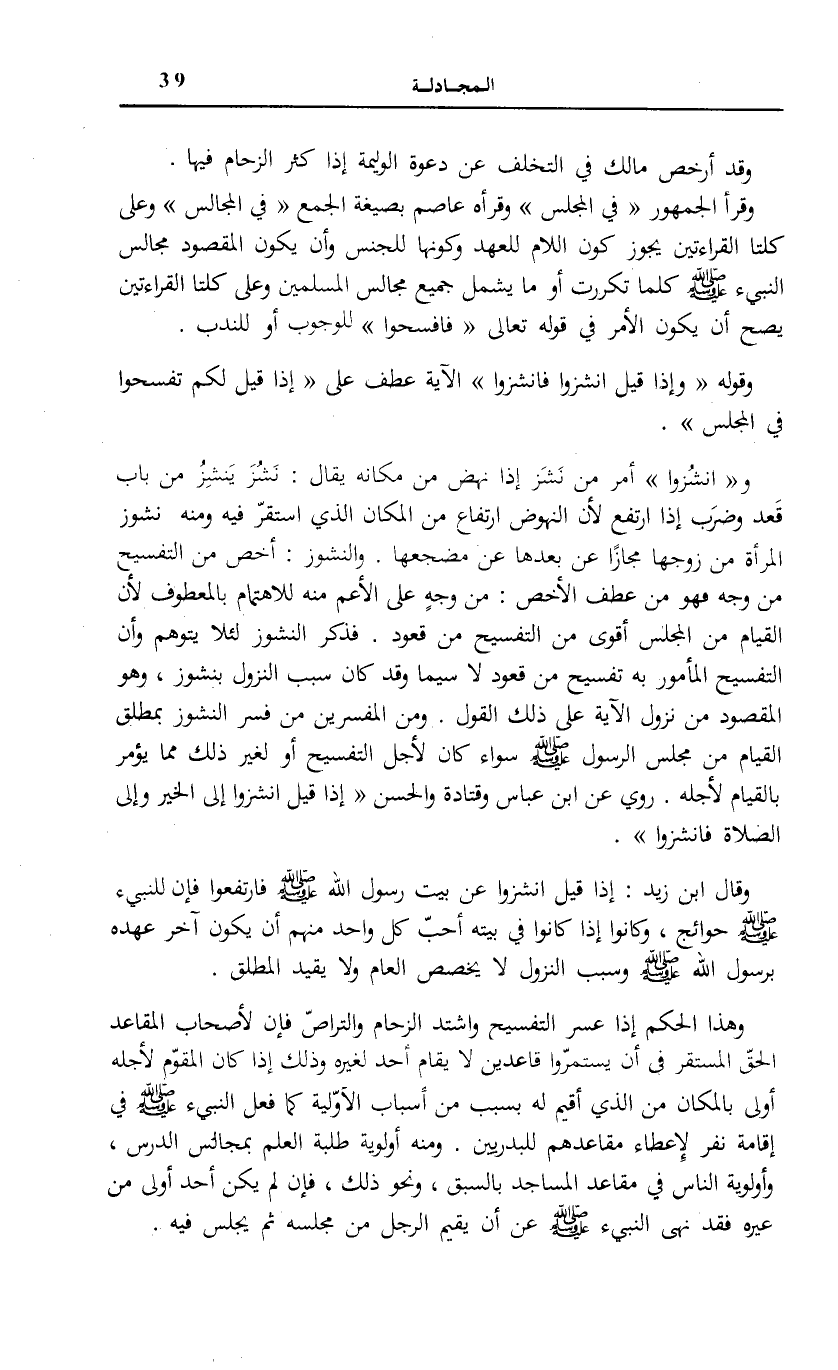 المجادلة 39
وقد أرخص مالك في التخلف عن دعوة الوليمة إذا كثر الزحام فيها .
وقرأ الجمهور « في المجلس » وقرأه عاصم بصيغة الجمع « في المجالس » وعلى
كلتا القراءتين يجوز كون اللام للعهد وكونها للجنس وأن يكون المقصود مجالس
النبيء ﷺ كلما تكررت أو ما يشمل جميع مجالس المسلمين وعلى كلتا القراءتين
يصح أن يكون الأمر في قوله تعالى « فافسحوا » للوجوب أو للندب .
وقوله « وإذا قيل انشزوا فانشزوا » الآية عطف على « إذا قيل لكم تفسحوا
في المجلس » .
و« انشُزوا » أمر من نَشَز إذا نهض من مكانه يقال : نَشُزَ يَنشِزُ من باب
قَعد وضرَب إذا ارتفع لأن النهوض ارتفاع من المكان الذي استقرّ فيه ومنه نشوز
المرأة من زوجها مجازًا عن بعدها عن مضجعها . والنشوز : أخص من التفسيح
من وجه فهو من عطف الأخص : من وجهٍ على الأعم منه للاهتمام بالمعطوف لأن
القيام من المجلس أقوى من التفسيح من قعود . فذكر النشوز لئلا يتوهم وأن
التفسيح المأمور به تفسيح من قعود لا سيما وقد كان سبب النزول بنشوز ، وهو
المقصود من نزول الآية على ذلك القول . ومن المفسرين من فسر النشوز بمطلق
القيام من مجلس الرسول ﷺ سواء كان لأجل التفسيح أو لغير ذلك مما يؤمر
بالقيام لأجله . روي عن ابن عباس وقتادة والحسن « إذا قيل انشزوا إلى الخير وإلى
الصلاة فانشزوا » .
وقال ابن زيد : إذا قيل انشزوا عن بيت رسول الله ﷺ فارتفعوا فإن للنبيء
ﷺ حوائج ، وكانوا إذا كانوا في بيته أحبّ كل واحد منهم أن يكون آخر عهده
برسول الله ﷺ وسبب النزول لا يخصص العام ولا يقيد المطلق .
وهذا الحكم إذا عسر التفسيح واشتد الزحام والتراصّ فإن لأصحاب المقاعد
الحقّ المستقر في أن يستمرّوا قاعدين لا يقام أحد لغيره وذلك إذا كان المقوّم لأجله
أولى بالمكان من الذي أقيم له بسبب من أسباب الأوّلية كما فعل النبيء ﷺ في
إقامة نفر لإعطاء مقاعدهم للبدريين . ومنه أولوية طلبة العلم بمجالس الدرس ،
وأولوية الناس في مقاعد المساجد بالسبق ، ونحو ذلك ، فإن لم يكن أحد أولى من
عيره فقد نهى النبيء ﷺ عن أن يقيم الرجل من مجلسه ثم يجلس فيه .